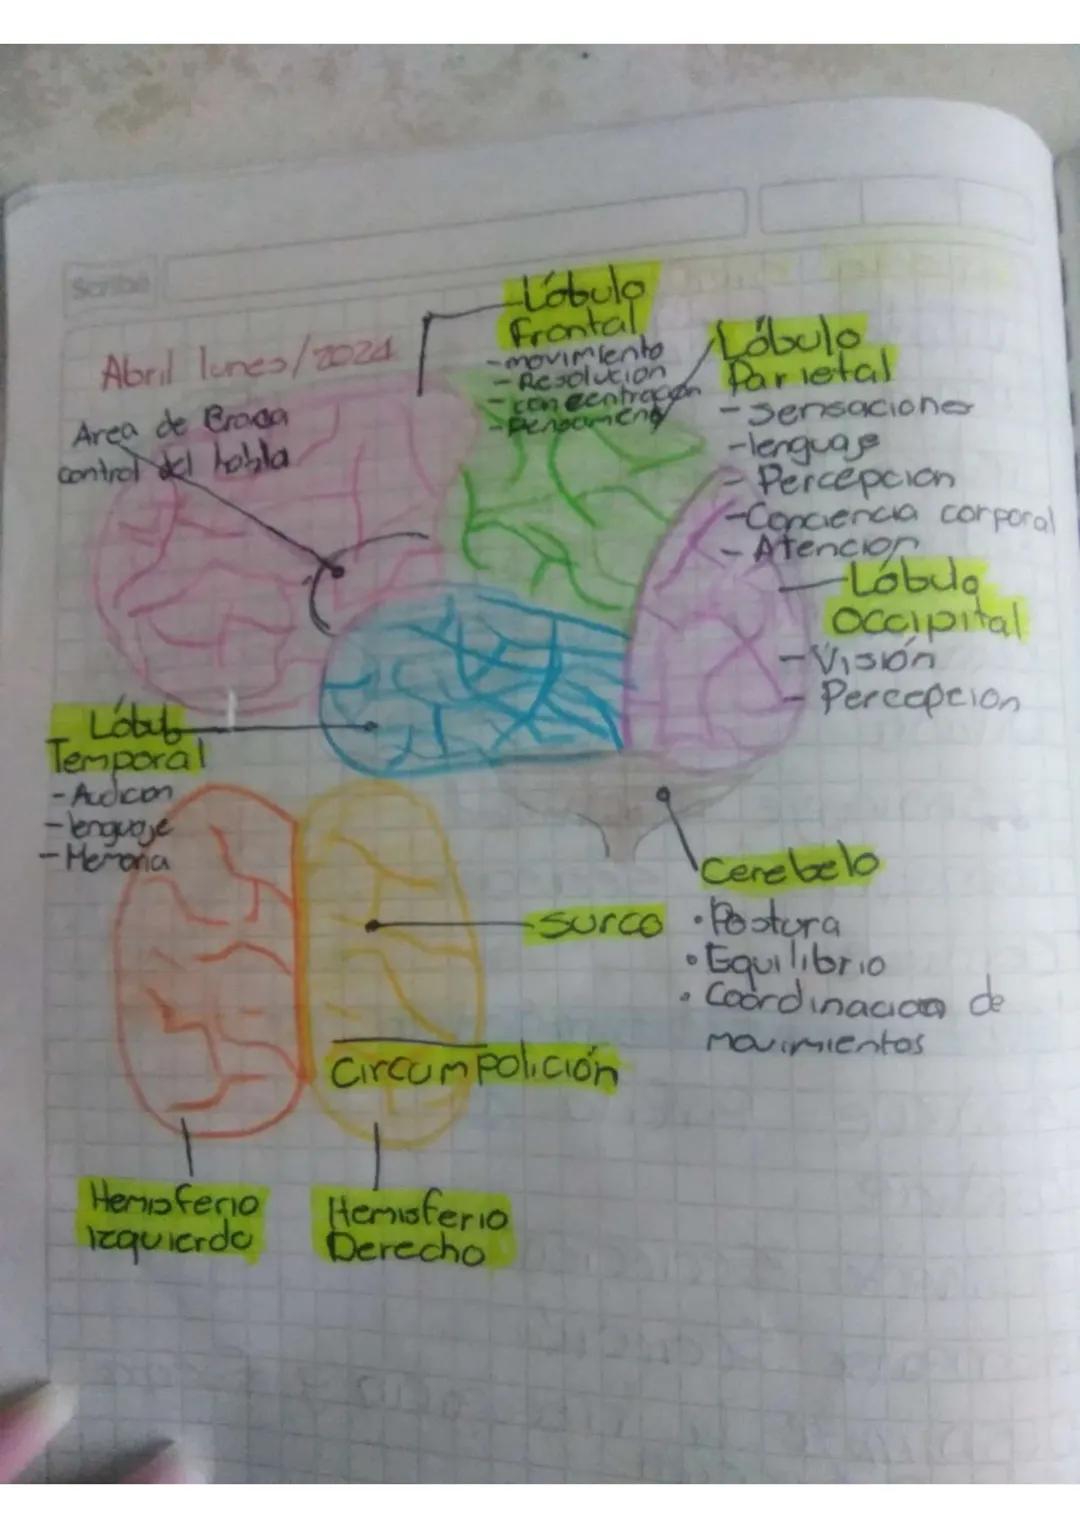 Scribe
Abril lunes/2024
Area de Broca
control del habla
Lóbulo
Frontal
-movimiento
-Resolución
-concentración
Lóbulo
Parietal
-Sensaciones
-lenguaje
-Percepcion
-Conciencia corporal
-Atencion
Lóbulo
Occipital
-Visión
-Percepcion
Lóbulo
Temporal
-Audicion
-lenguaje
-Memoria
Cerebelo
•Postura
•Equilibrio
•Coordinacion de
movimientos
Surco
Circumpolición
Hemisferio
Izquierdo
Hemisferio
Derecho